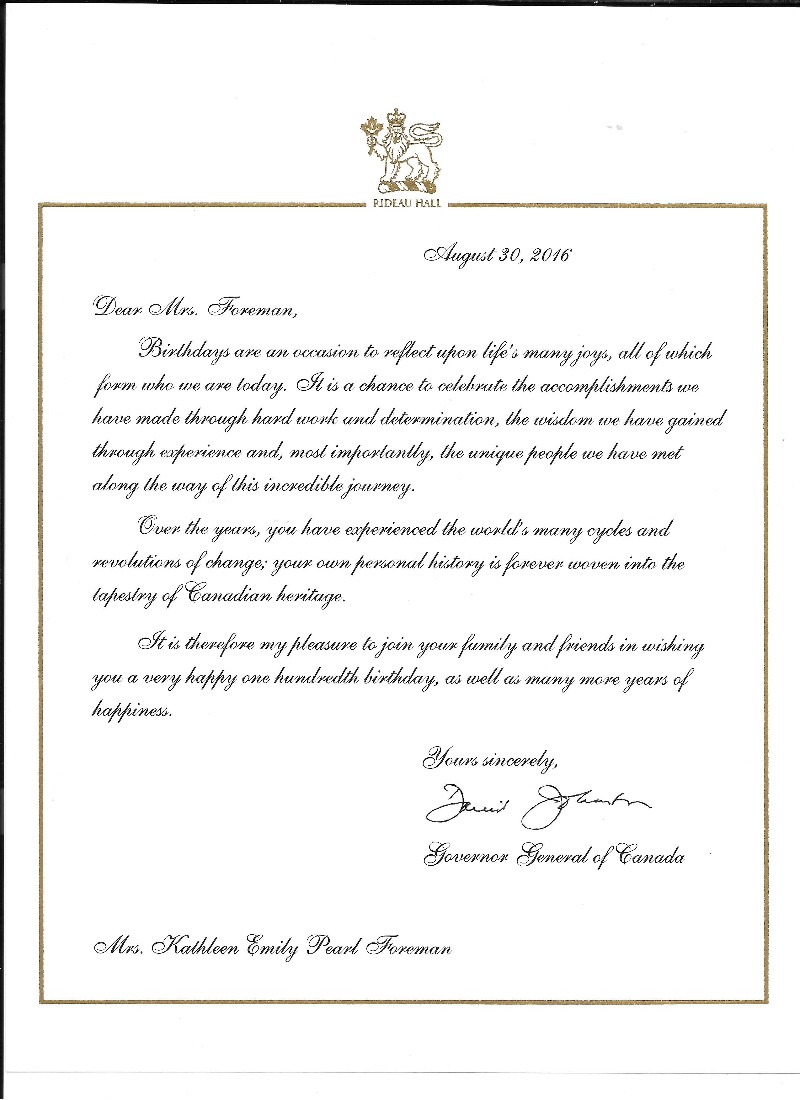 RIDEAU HALL
August 30, 2016
Dear Mrs. Foreman,
Birthdays are an occasion to reflect upon life's many joys, all of which
form who we are today. It is a chance to celebrate the accomplishments we
have made through hard work and determination, the wisdom we have gained
through experience and, most importantly, the unique people we have met
along the way of this incredible journey.
Over the years, you have experienced the world's many cycles and
revolutions of change; your own personal history is forever woven into the
tapestry of Canadian heritage.
It is therefore my pleasure to join your family and friends in wishing
you a very happy one hundredth birthday, as well as many more years of
happiness.
Yours sincerely,
David Johnston
Governor General of Canada
Mrs. Kathleen Emily Pearl Foreman